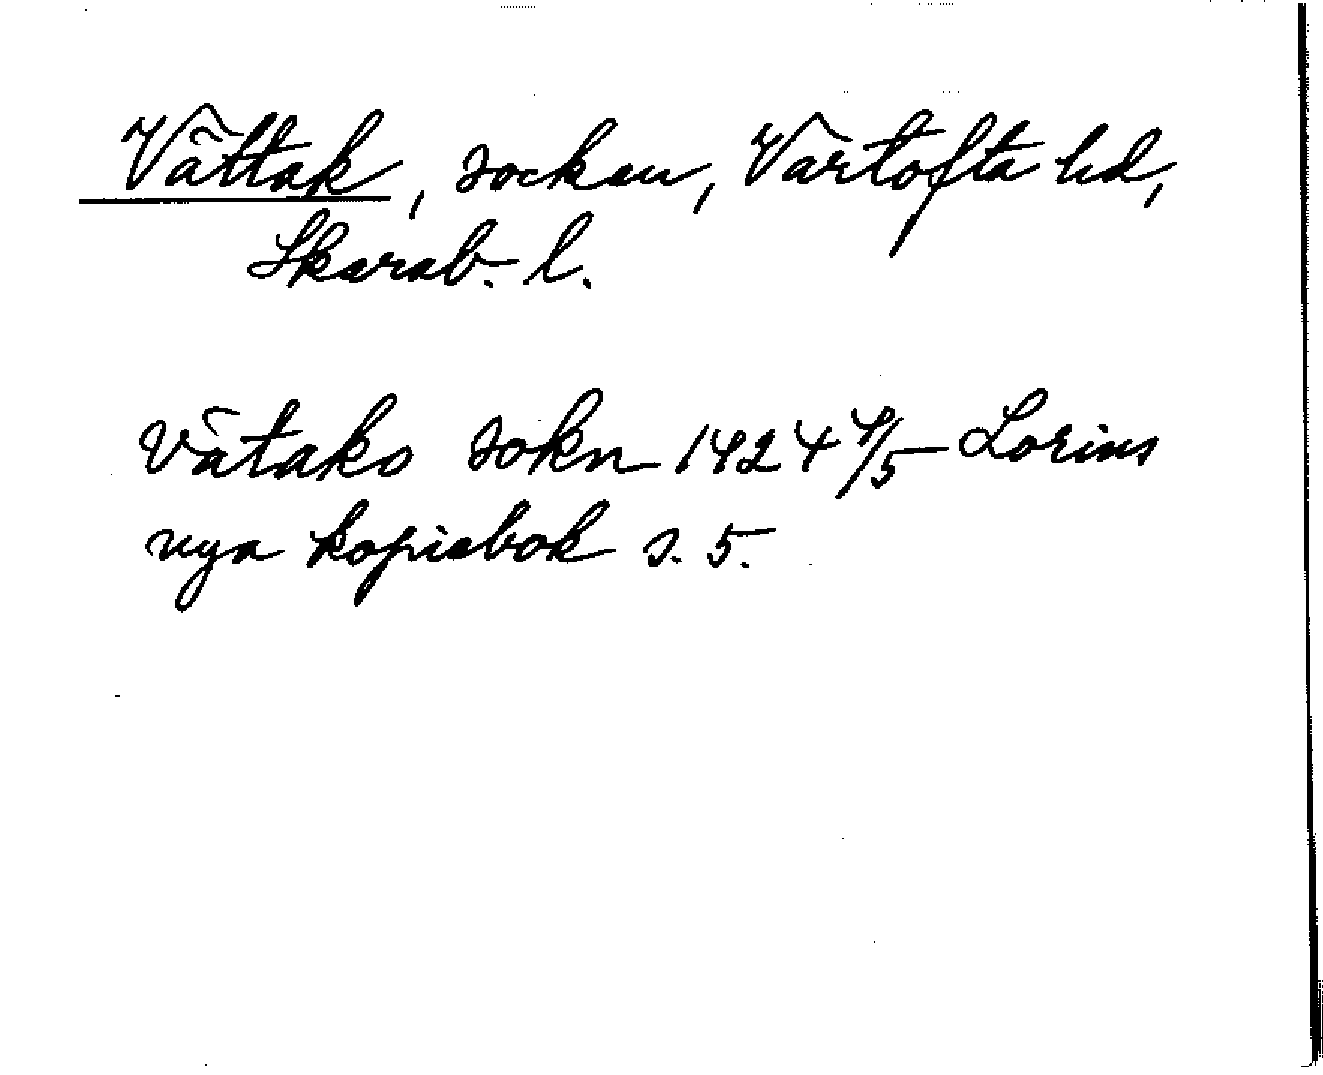 Vättak, socken, Vartofta hd,
Skarab. l.
Vätako sokn 1424 4/5 Lorins
nya kopiebok s. 5.